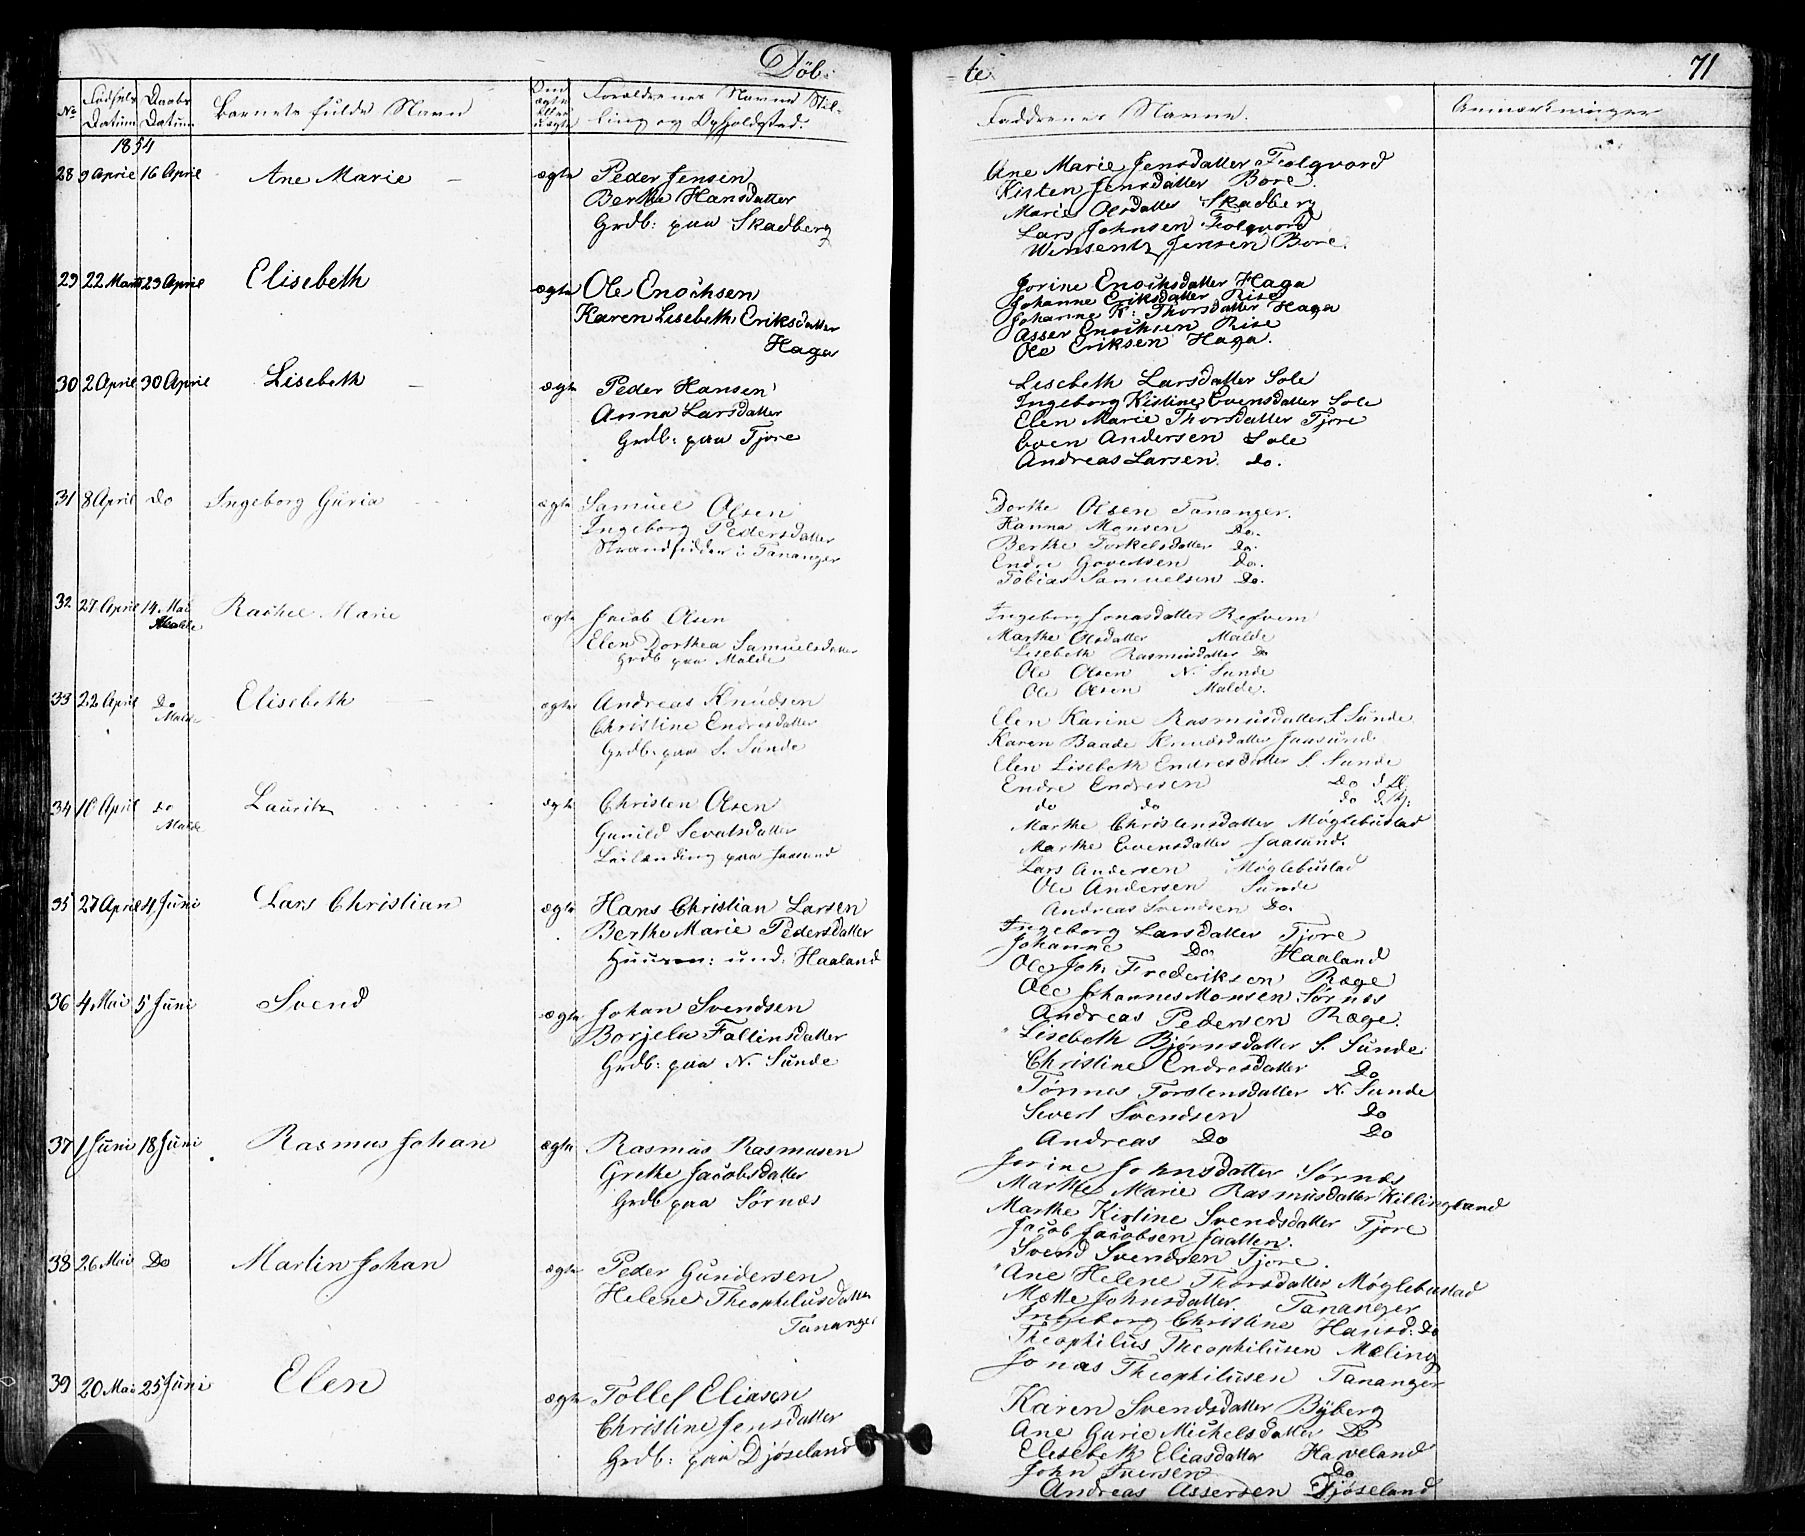 Døb-
te
71
No
Fødsels Datum
Daabs Datum
Barnets fulde Navn
Om ægte eller uægte
Forældrenes Navne Stil-
ling og Opholdsted.
Faddernes Navne.
Anmærkninger
1854
28 9 April 16 April Ane Marie ægte Peder Jensen
Berthe Hansdatter
Grdb: paa Skadberg
Ane Marie Jensdatter Folqvord
Kisten Jensdatter Bore.
Marie Olsdatter Skadberg
Lars Johnsen Folqvord
Winsentz Jensen Bore.
29 22 Marts 23 April Elisebeth ægte Ole Enochsen
Karen Lisebeth Eriksdatter
Haga
Jorine Enochsdatter Haga
Johanne Eriksdatter Rise
Johanne K: Thorsdatter Haga
Asser Enochsen Rise
Ole Eriksen Haga.
30 2 April 30 April Lisebeth ægte Peder Hansen
Anna Larsdatter
Grdb: paa Tjore
Lisebeth Larsdatter Sole
Ingeborg Kistine Evensdatter Sole
Elen Marie Thorsdatter Tjore
Even Andersen Sole
Andreas Larsen do.
31 8 April Do Ingeborg Guria ægte Samuel Olsen
Ingeborg Pedersdatter
Strandsidder i Tananger
Dorthe Olsen Tananger.
Hanna Monsen Do.
Berthe Torkelsdatter Do.
Endre Govertsen Do.
Tobias Samuelsen Do.
32 27 April 14 Mai Malde Rachel Marie ægte Jacob Olsen
Elen Dorthea Samuelsdatter
Grdb paa Malde
Ingeborg Jonasdatter Refvem
Marthe Olsdatter Malde
Lisebeth Rasmusdatter Do
Ole Olsen N. Sunde
Ole Olsen Malde.
33 22 April Do Malde Elisebeth ægte Andreas Knudsen
Christine Endresdatter
Grdb. paa S. Sunde
Elen Karine Rasmusdatter S. Sunde
Karen Baade Knudsdatter Jaasund
Elen Lisebeth Endresdatter S. Sunde
Endre Endresen Do
do do do
34 10 April Do Malde Lauritz ægte Christen Olsen
Gunild Sevatsdatter
Leilænding paa Jaasund
Marthe Christensdatter Møglebustad
Marthe Evensdatter Jaasund.
Lars Andersen Møglebustad
Ole Andersen Sunde
Andreas Svendsen Do.
35 27 April 4 Juni Lars Christian ægte Hans Christian Larsen
Berthe Marie Pedersdatter
Huusm: und: Haaland
Ingeborg Larsdatter Tjore
Johanne Do Haaland
Ole Joh. Frederiksen Ræge
Ole Johannes Monsen Sørnes
Andreas Pedersen Ræge.
36 4 Mai 5 Juni Svend ægte Johan Svendsen
Borjela Fallinsdatter
Grdb: paa N. Sunde
Lisebeth Bjørnsdatter S. Sunde
Christine Endresdatter Do
Tønnes Torstensdatter N. Sunde
Sivert Svendsen Do
Andreas Do Do
37 1 Juni 18 Juni Rasmus Johan ægte Rasmus Rasmusen
Grethe Jacobsdatter
Grdb paa Sørnæs
Jorine Johnsdatter Sørnæs
Marthe Marie Rasmusdatter Killingland
Marthe Kistine Svendsdatter Tjore
Jacob Jacobsen Jaatten.
Svend Svendsen Tjore.
38 26 Mai Do Martin Johan ægte Peder Gundersen
Helene Theophilusdatter
Tananger
Ane Helene Thorsdatter Møglebustad
Mætte Johnsdatter. Tananger
Ingeborg Christine Hansd: Do
Theophilus Theophilusen Mæling
Jonas Theophilusen Tananger
39 20 Mai 25 Juni Elen ægte Tollef Eliasen
Christine Jensdatter
Grdb: paa Djøseland
Karen Svendsdatter Byberg
Ane Gurie Michelsdatter Do
Elisebeth Eliasdatter Haveland
John Iversen Do
Andreas Assersen Djøseland